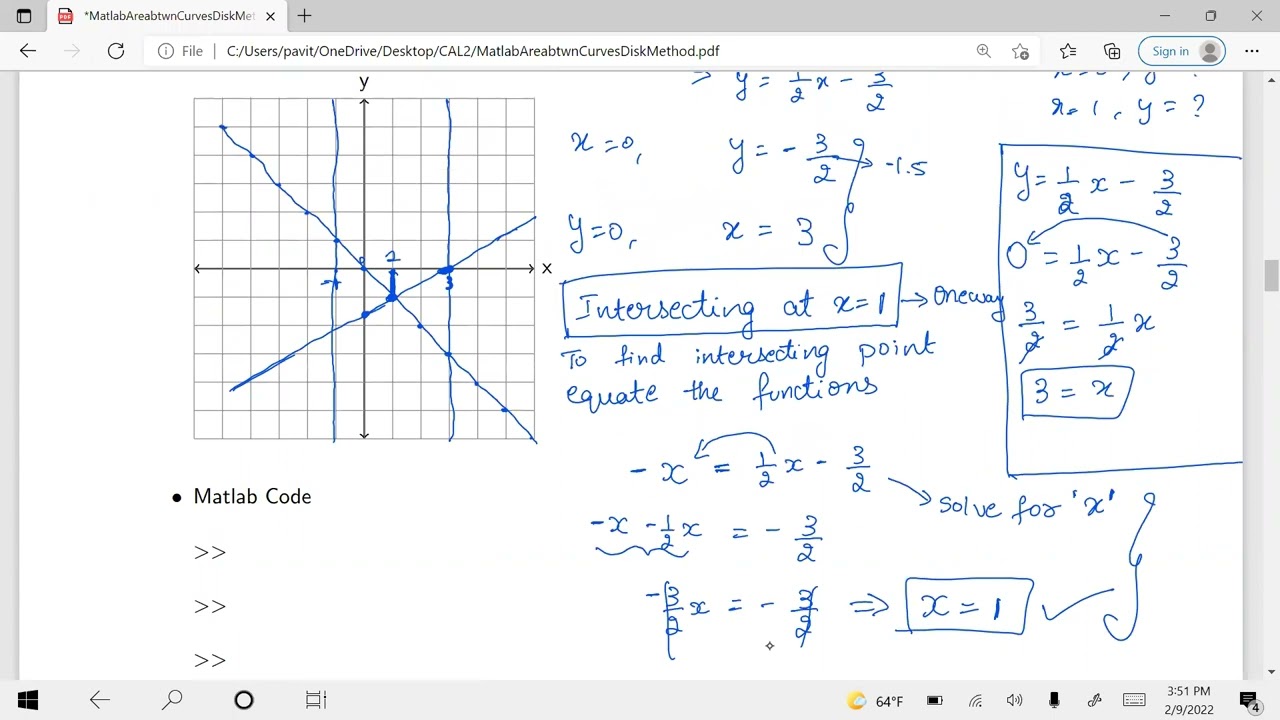 *MatlabAreabtwnCurvesDiskMet
File
C:/Users/pavit/OneDrive/Desktop/CAL2/MatlabAreabtwnCurvesDiskMethod.pdf
Sign in
y
x
-1
1
3
⇒ y = 1/2 x - 3/2
x = 1, y = ?
x = 0,
y = - 3/2 → -1.5
y = 0,
x = 3
Intersecting at x = 1 → One way
To find intersecting point
equate the functions
-x = 1/2 x - 3/2
→ solve for 'x'
-x - 1/2 x = - 3/2
-3/2 x = - 3/2 ⇒ x = 1
y = 1/2 x - 3/2
0 = 1/2 x - 3/2
3/2 = 1/2 x
3 = x
• Matlab Code
>>
>>
>>
64°F
3:51 PM
2/9/2022
4